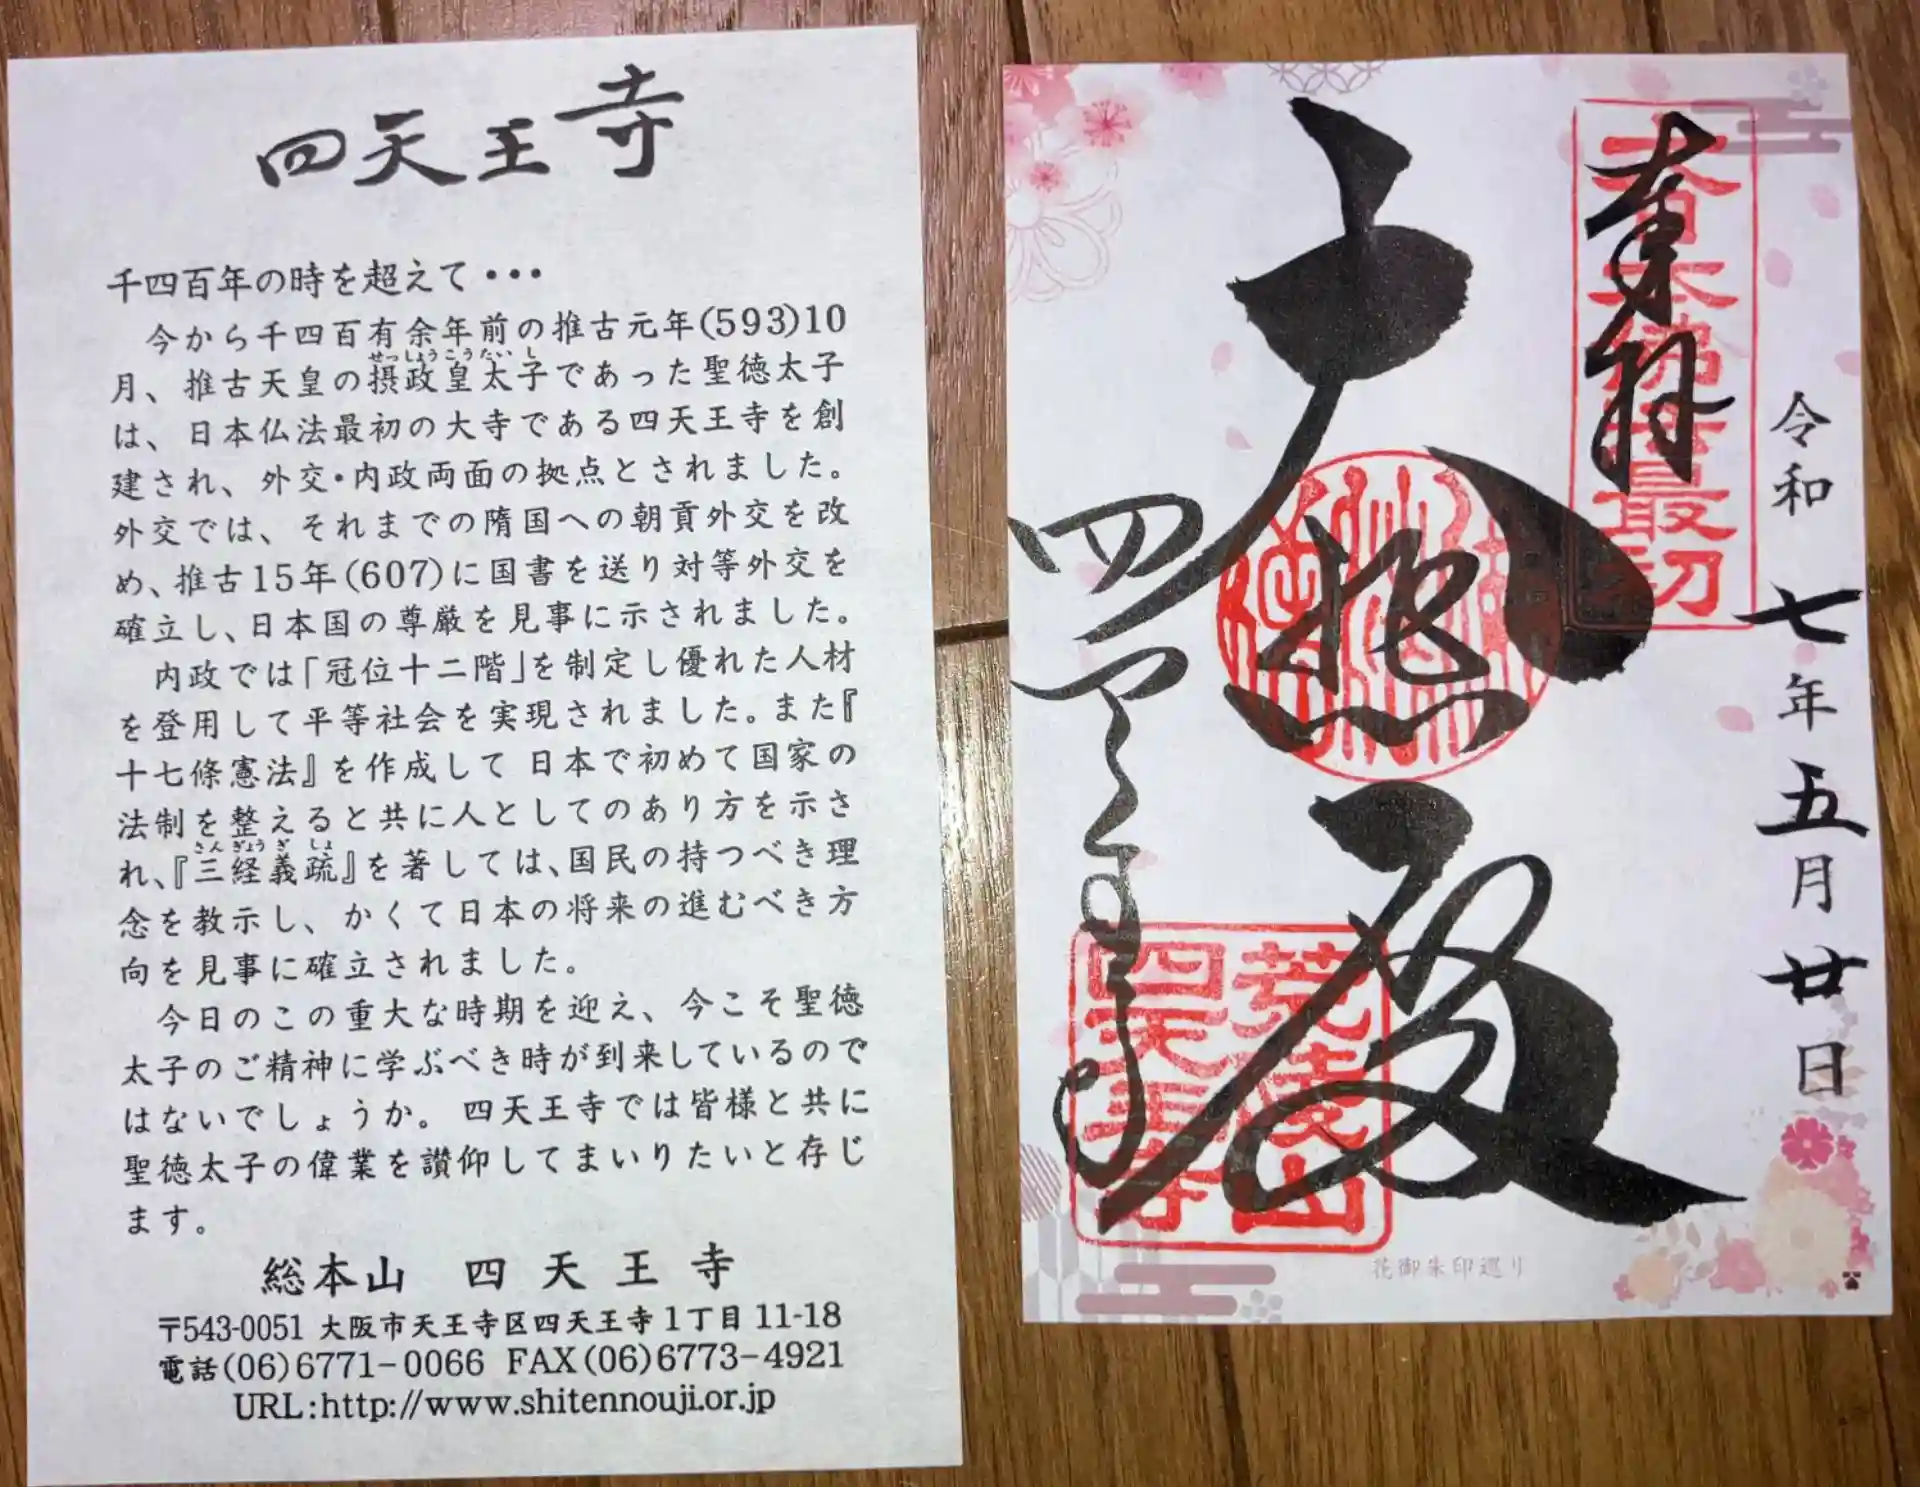 四天王寺
千四百年の時を超えて・・・
今から千四百有余年前の推古元年(593)10
せっしょうこうたいし
月、推古天皇の摂政皇太子であった聖徳太子
は、日本仏法最初の大寺である四天王寺を創
建され、外交・内政両面の拠点とされました。
外交では、それまでの隋国への朝貢外交を改
め、推古15年(607)に国書を送り対等外交を
確立し、日本国の尊厳を見事に示されました。
内政では「冠位十二階」を制定し優れた人材
を登用して平等社会を実現されました。また『
十七條憲法』を作成して 日本で初めて国家の
法制を整えると共に人としてのあり方を示さ
さんぎょうぎしょ
れ、『三経義疏』を著しては、国民の持つべき理
念を教示し、かくて日本の将来の進むべき方
向を見事に確立されました。
今日のこの重大な時期を迎え、今こそ聖徳
太子のご精神に学ぶべき時が到来しているので
はないでしょうか。四天王寺では皆様と共に
聖徳太子の偉業を讃仰してまいりたいと存じ
ます。
総本山 四天王寺
〒543-0051 大阪市天王寺区四天王寺1丁目11-18
電話(06)6771-0066 FAX(06)6773-4921
URL:http://www.shitennouji.or.jp
令和七年五月廿日
奉拝
大日本佛法最初
大悲殿
四天王寺
荒陵山
四天王寺
花御朱印巡り